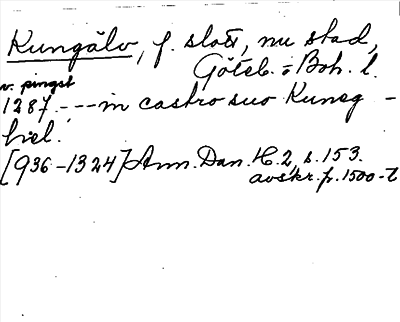 Kungälv, f. slott, nu stad,
Göteb. o. Boh. l.
v. pingst
1287. --- in castro suo Kuneg -
hiel.
[936-1324] Ann. Dan. H. 2, s. 153.
avskr. fr. 1500-t